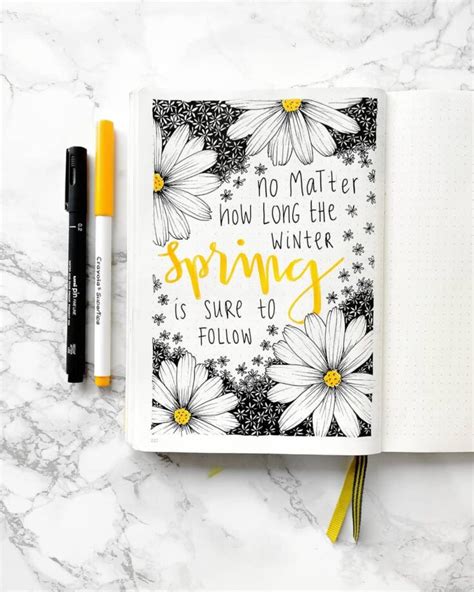 no MaTTer
how LONG THE
WINTER
Spring
is SURE to
FOLLOW
0.2
uni pin fine line
Crayola® Supertips